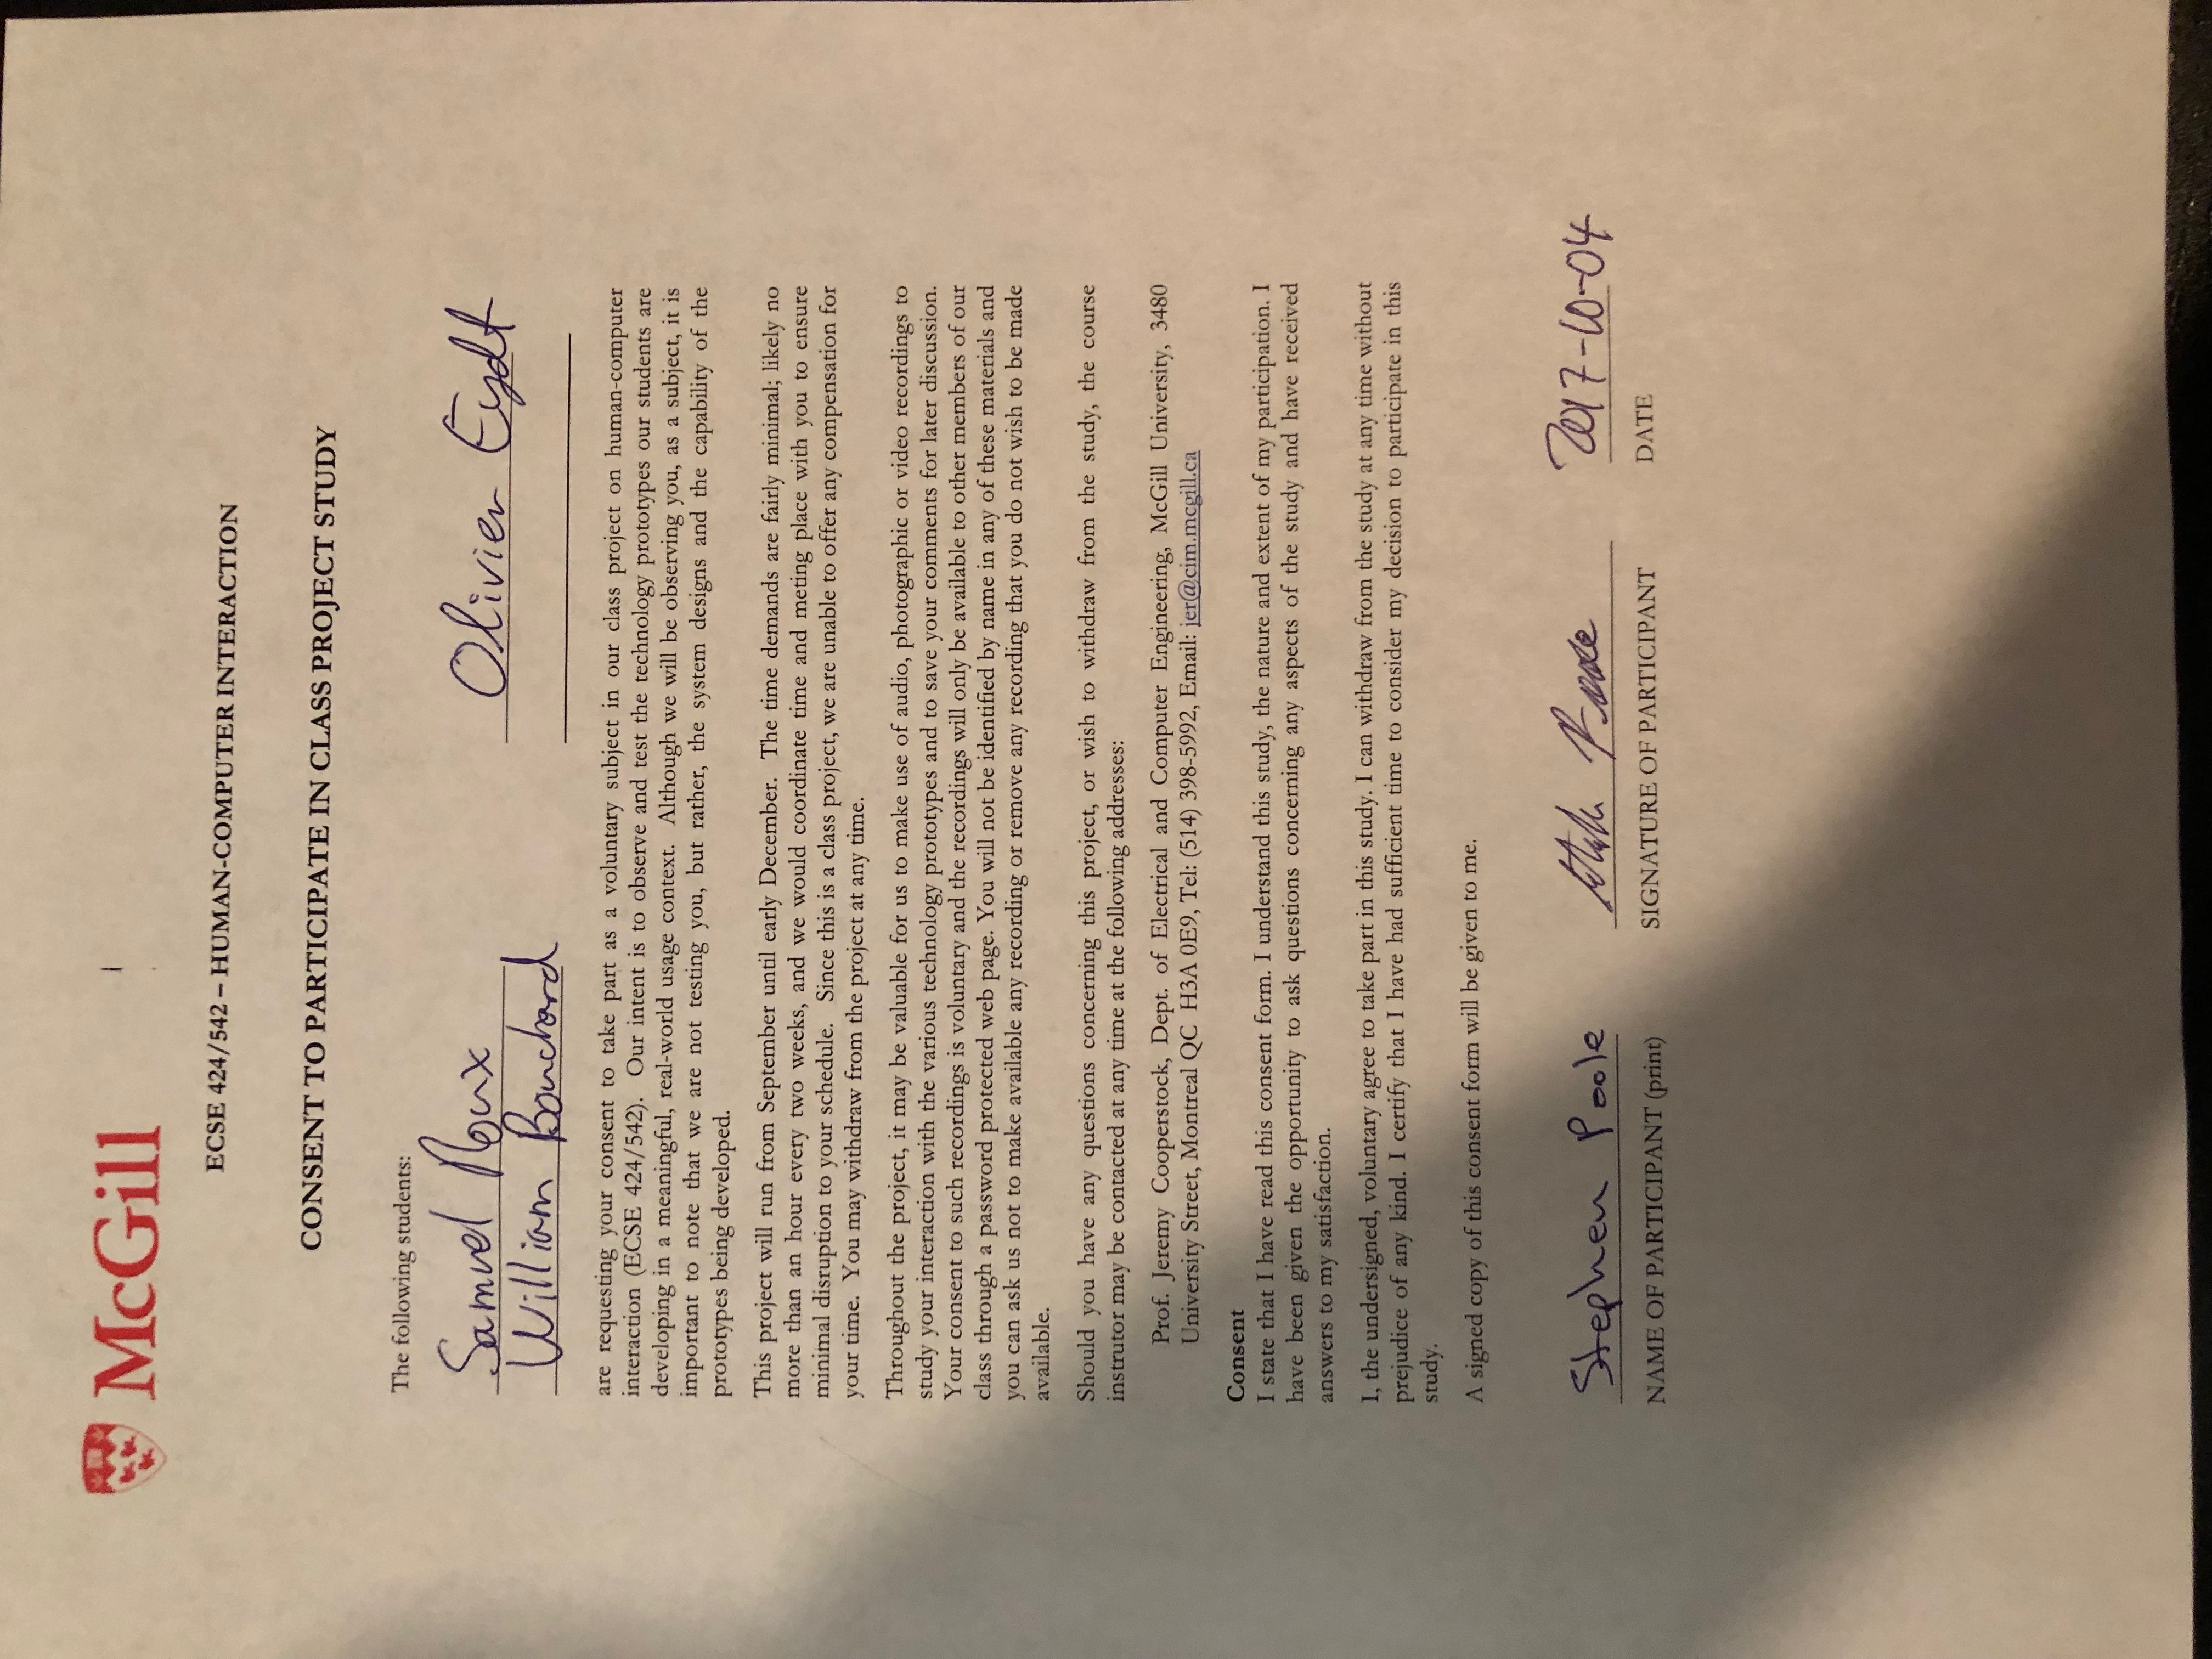 McGill
ECSE 424/542 – HUMAN-COMPUTER INTERACTION
CONSENT TO PARTICIPATE IN CLASS PROJECT STUDY
The following students:
Samuel Roux Olivier Eydt
William Bouchard
are requesting your consent to take part as a voluntary subject in our class project on human-computer
interaction (ECSE 424/542). Our intent is to observe and test the technology prototypes our students are
developing in a meaningful, real-world usage context. Although we will be observing you, as a subject, it is
important to note that we are not testing you, but rather, the system designs and the capability of the
prototypes being developed.
This project will run from September until early December. The time demands are fairly minimal; likely no
more than an hour every two weeks, and we would coordinate time and meting place with you to ensure
minimal disruption to your schedule. Since this is a class project, we are unable to offer any compensation for
your time. You may withdraw from the project at any time.
Throughout the project, it may be valuable for us to make use of audio, photographic or video recordings to
study your interaction with the various technology prototypes and to save your comments for later discussion.
Your consent to such recordings is voluntary and the recordings will only be available to other members of our
class through a password protected web page. You will not be identified by name in any of these materials and
you can ask us not to make available any recording or remove any recording that you do not wish to be made
available.
Should you have any questions concerning this project, or wish to withdraw from the study, the course
instrutor may be contacted at any time at the following addresses:
Prof. Jeremy Cooperstock, Dept. of Electrical and Computer Engineering, McGill University, 3480
University Street, Montreal QC H3A 0E9, Tel: (514) 398-5992, Email: jer@cim.mcgill.ca
Consent
I state that I have read this consent form. I understand this study, the nature and extent of my participation. I
have been given the opportunity to ask questions concerning any aspects of the study and have received
answers to my satisfaction.
I, the undersigned, voluntary agree to take part in this study. I can withdraw from the study at any time without
prejudice of any kind. I certify that I have had sufficient time to consider my decision to participate in this
study.
A signed copy of this consent form will be given to me.
Stephen Poole Poole 2017-10-04
NAME OF PARTICIPANT (print) SIGNATURE OF PARTICIPANT DATE